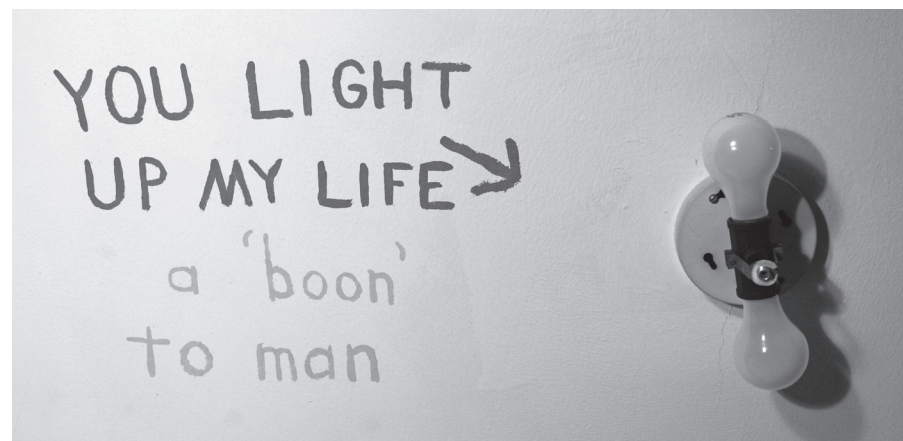 YOU LIGHT
UP MY LIFE
a 'boon'
to man